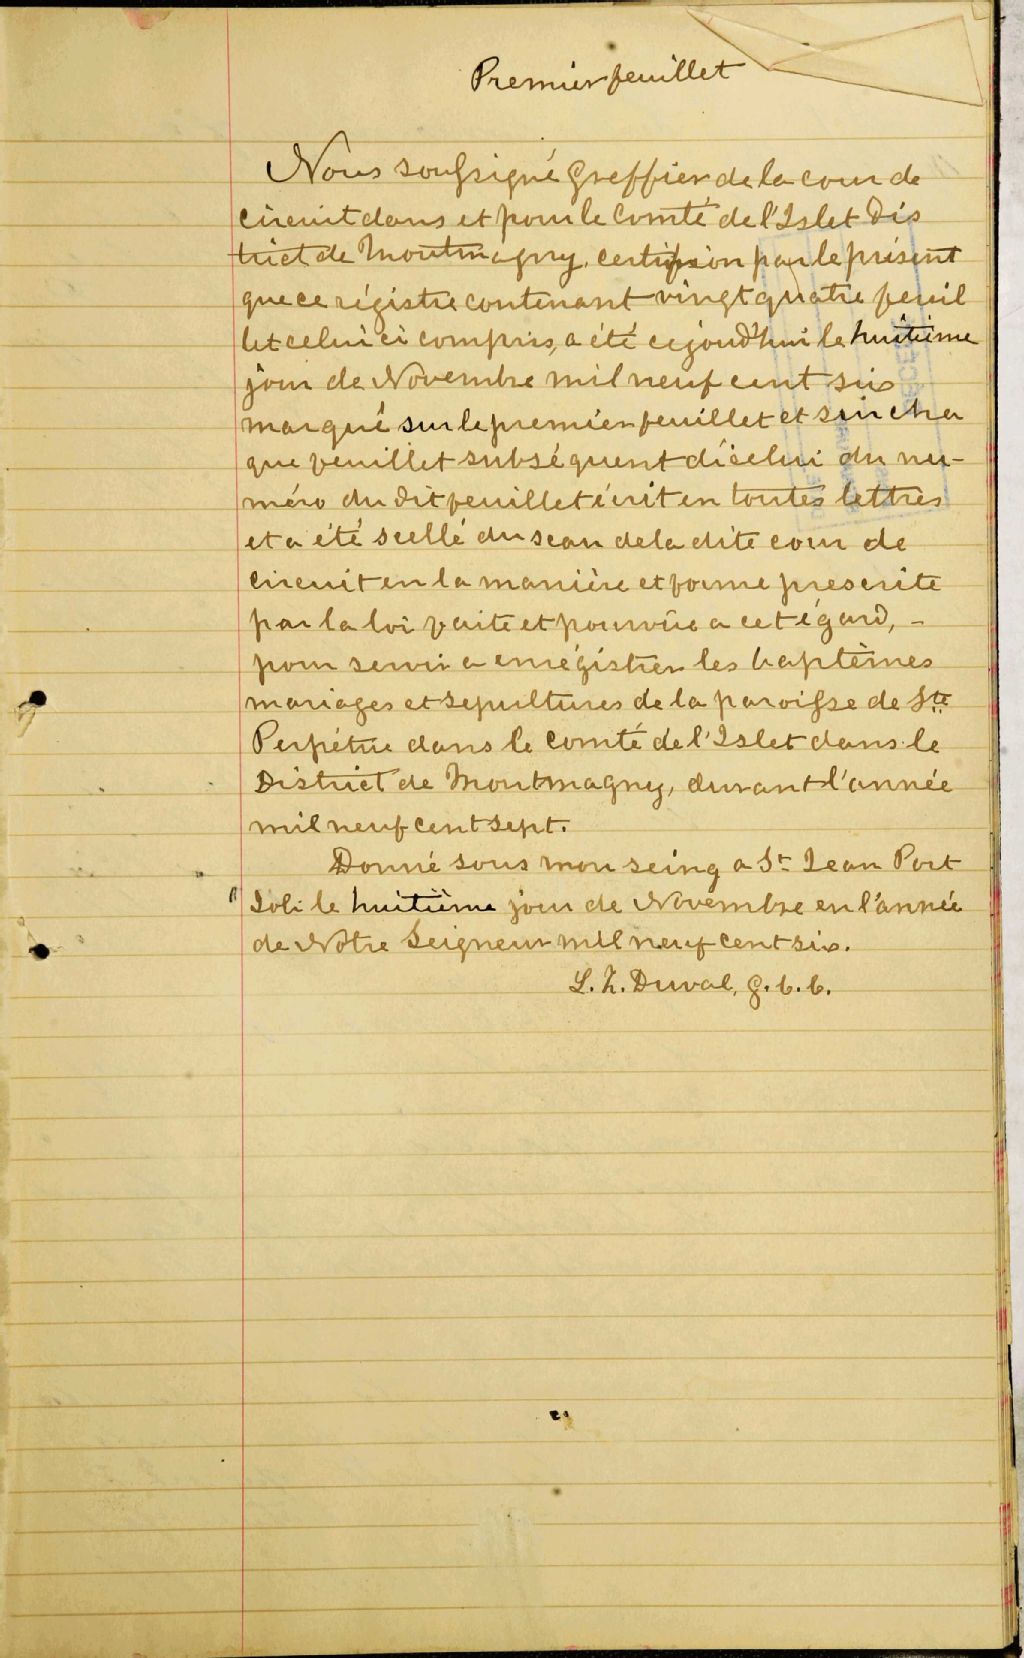 Premier feuillet
Nous soussigné Greffier de la cour de
circuit dans et pour le Comté de l'Islet Dis
trict de Montmagny, certifion par le présent
que ce régistre contenant vingt quatre feuil
let celui ci compris, a été cejourd'hui le huitième
jour de Novembre mil neuf cent six
marqué sur le premier feuillet et sur cha
que feuillet subséquent d'icelui du nu-
méro du dit feuillet écrit en toutes lettres
et a été scellé du sceau de la dite cour de
circuit en la manière et forme prescrite
par la loi faite et pourvûe a cet égard, -
pour servir a enrégistrer les baptèmes
mariages et sepultures de la paroisse de Ste
Perpétue dans le Comté de l'Islet dans le
District de Montmagny, durant l'année
mil neuf cent sept.
Donné sous mon seing a St Jean Port
Joli le huitième jour de Novembre en l'année
de Notre Seigneur mil neuf cent six.
L. Z. Duval, G. C. C.